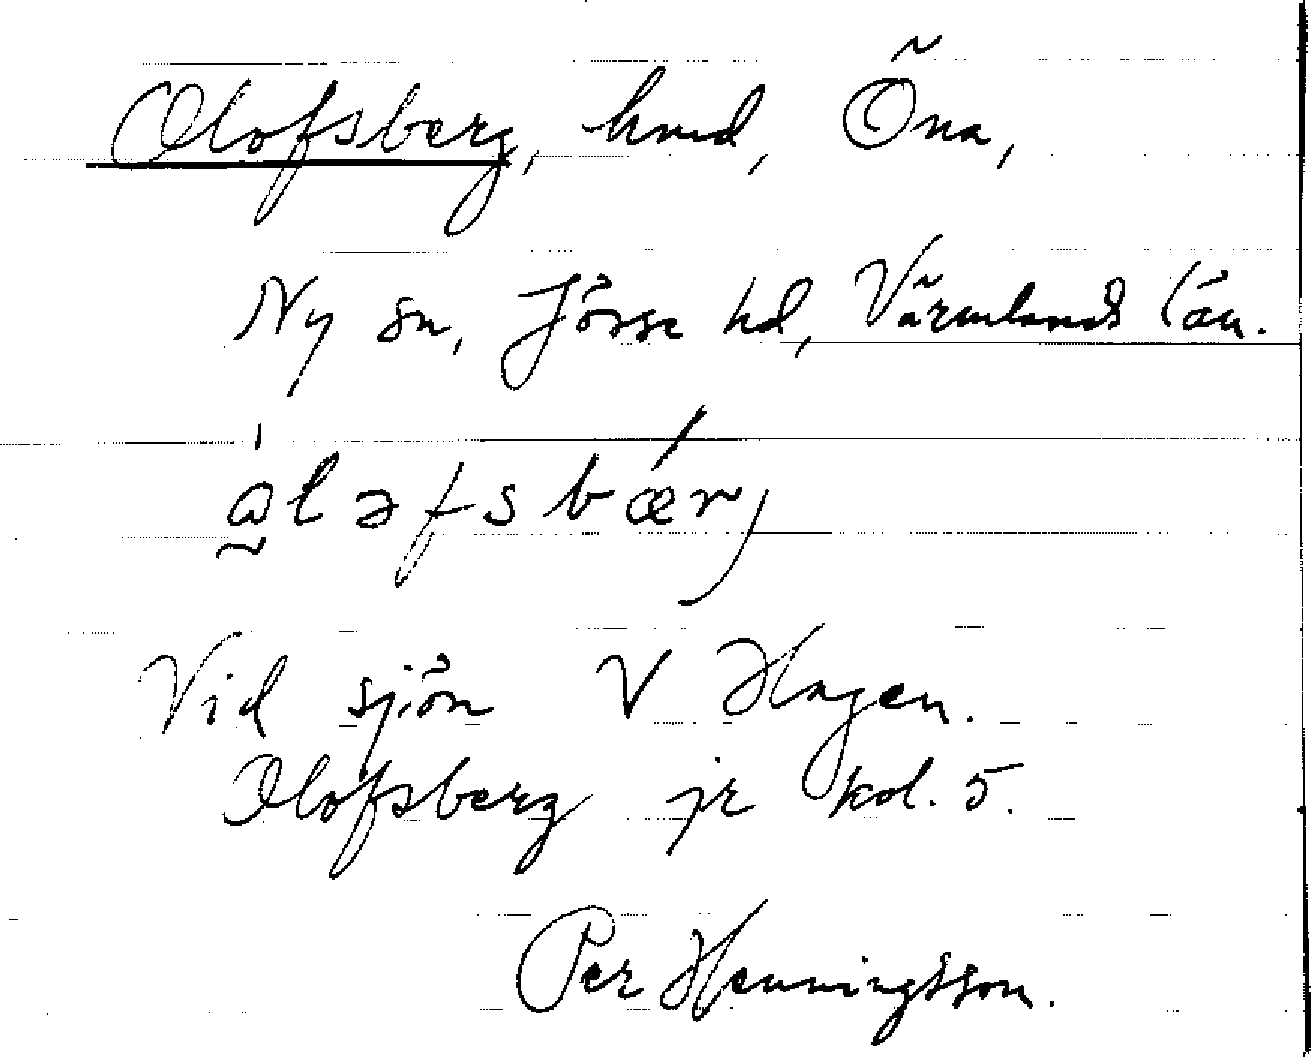 Olofsberg, hmd, Öna,
Ny sn, Jösse hd, Värmlands län.
Vid sjön V Hugen.
Olofsberg jr kol. 5.
Per Henningsson.